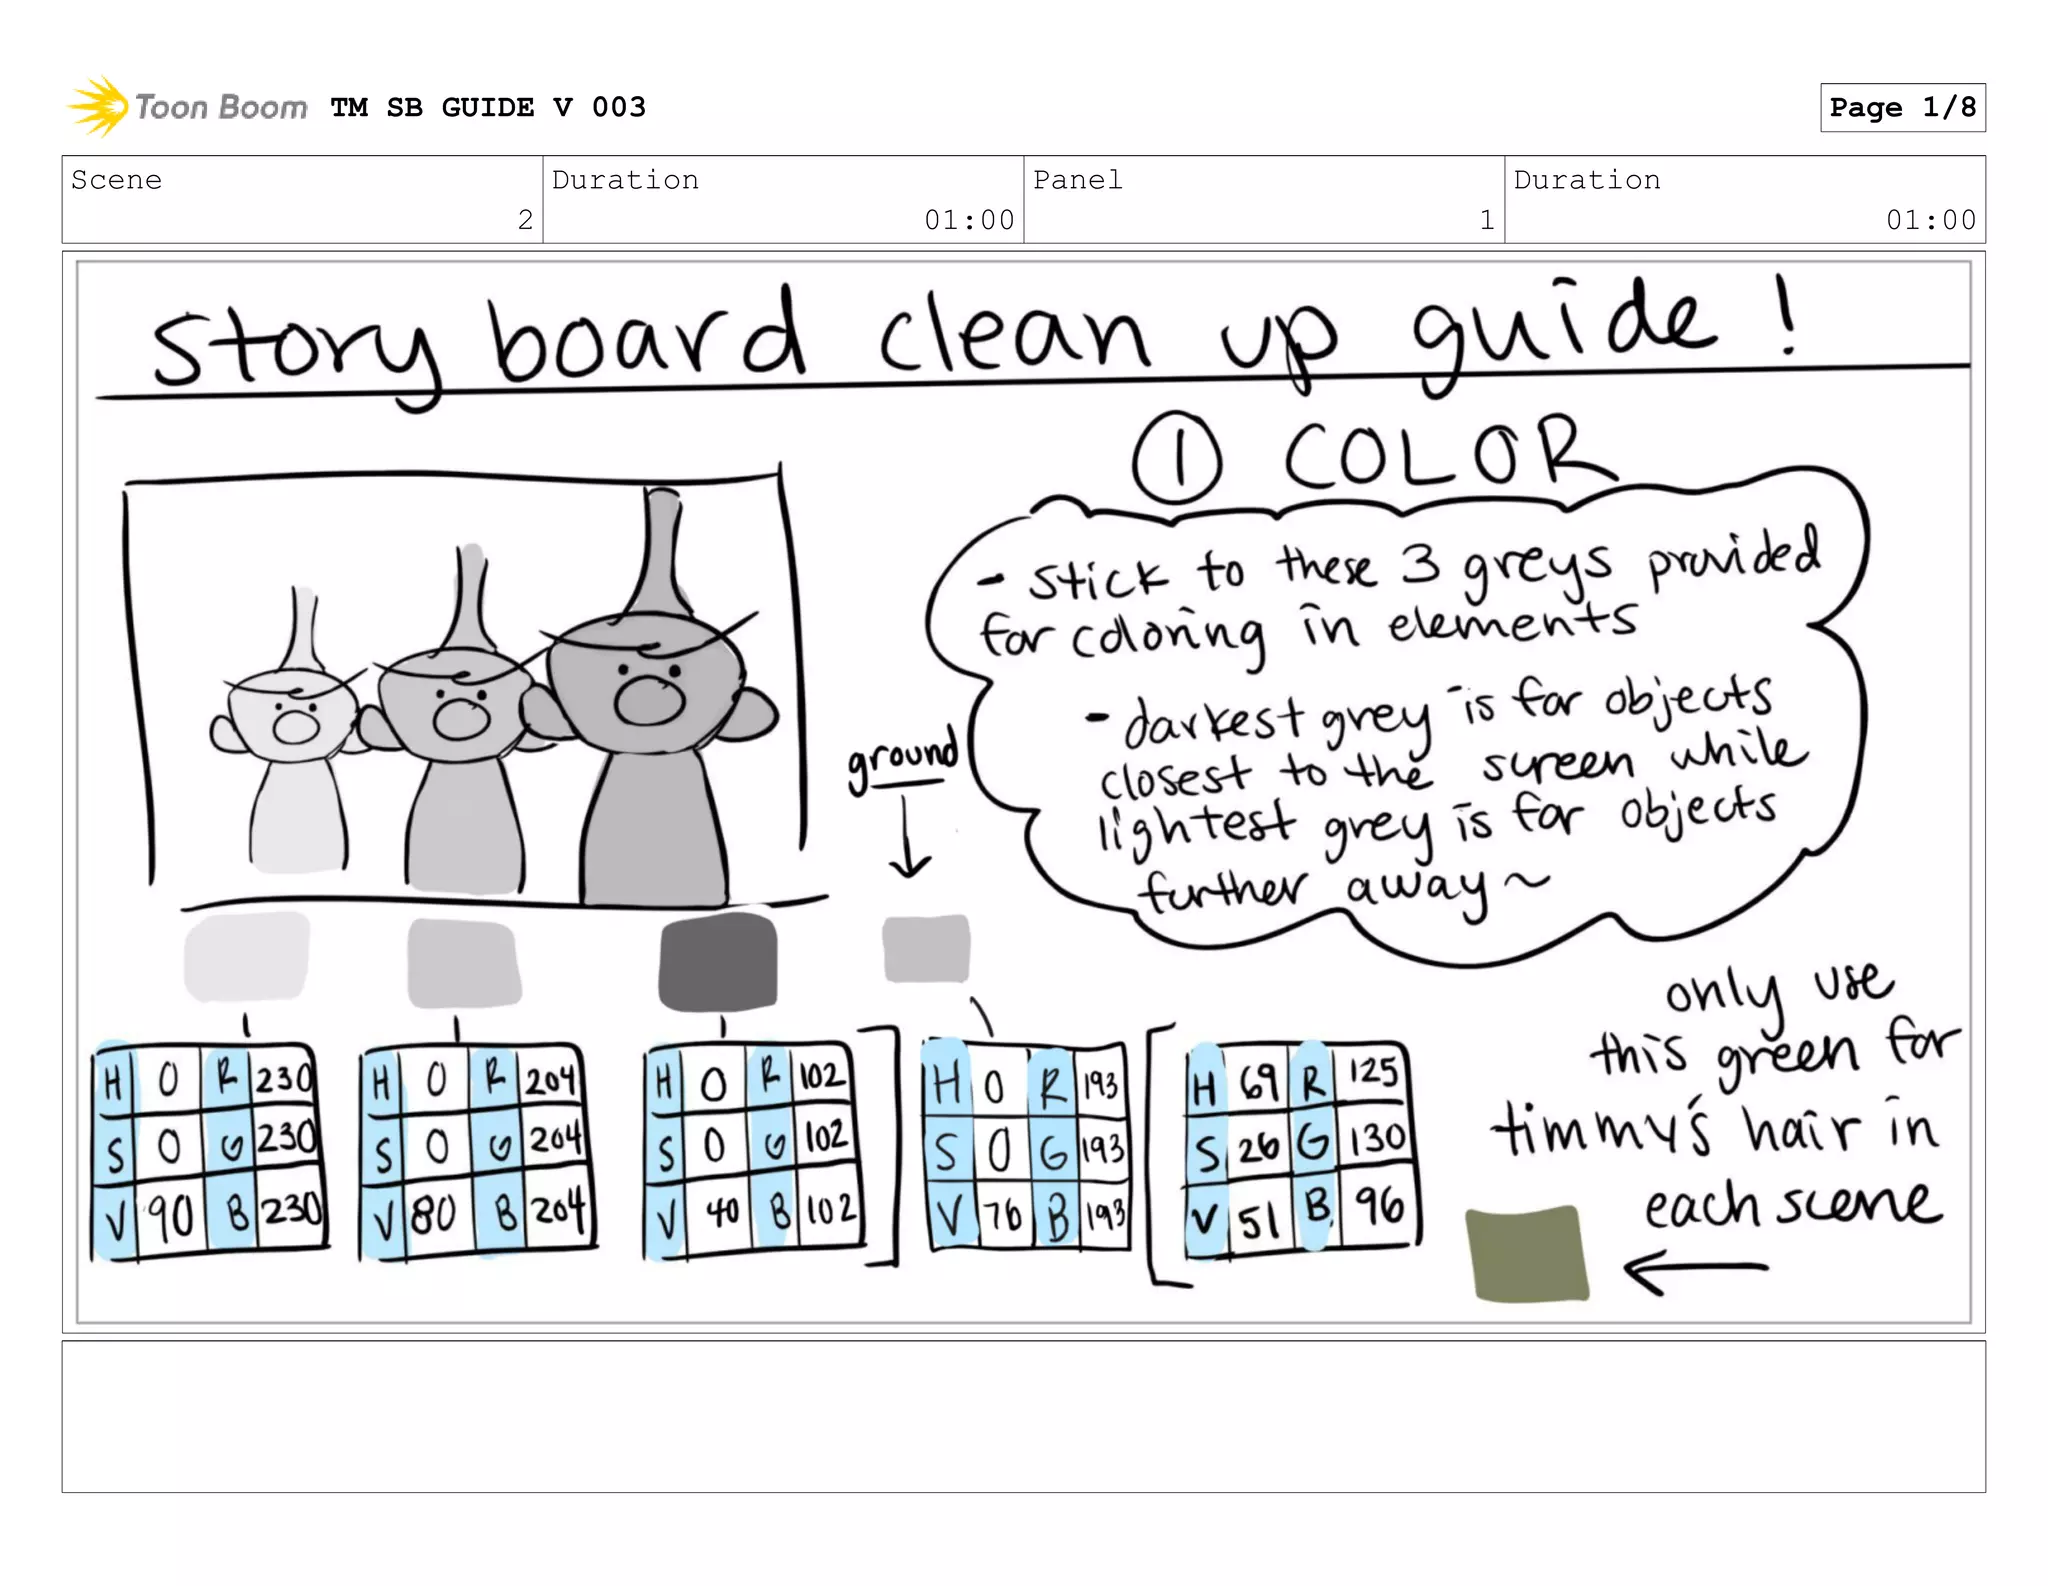 Toon Boom TM SB GUIDE V 003
Page 1/8
Scene
2
Duration
01:00
Panel
1
Duration
01:00
story board clean up guide!
① COLOR
- stick to these 3 greys provided
for coloring in elements
- darkest grey is for objects
closest to the screen while
lightest grey is for objects
further away~
ground
only use
this green for
timmy's hair in
each scene
H 0 R 230
S 0 G 230
V 90 B 230
H 0 R 204
S 0 G 204
V 80 B 204
H 0 R 102
S 0 G 102
V 40 B 102
H 0 R 193
S 0 G 193
V 76 B 193
H 69 R 125
S 26 G 130
V 51 B 96